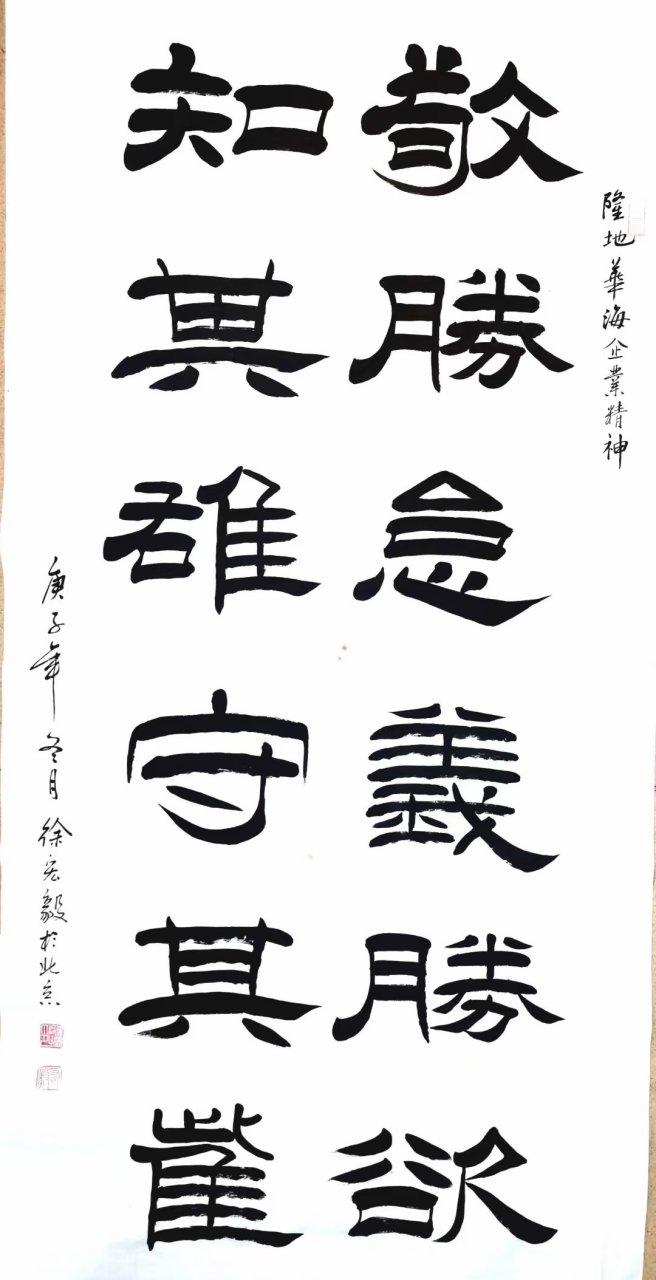 隆地華海企業精神
敬勝怠義勝欲
知其雄守其雌
庚子年冬月徐宏毅於北京